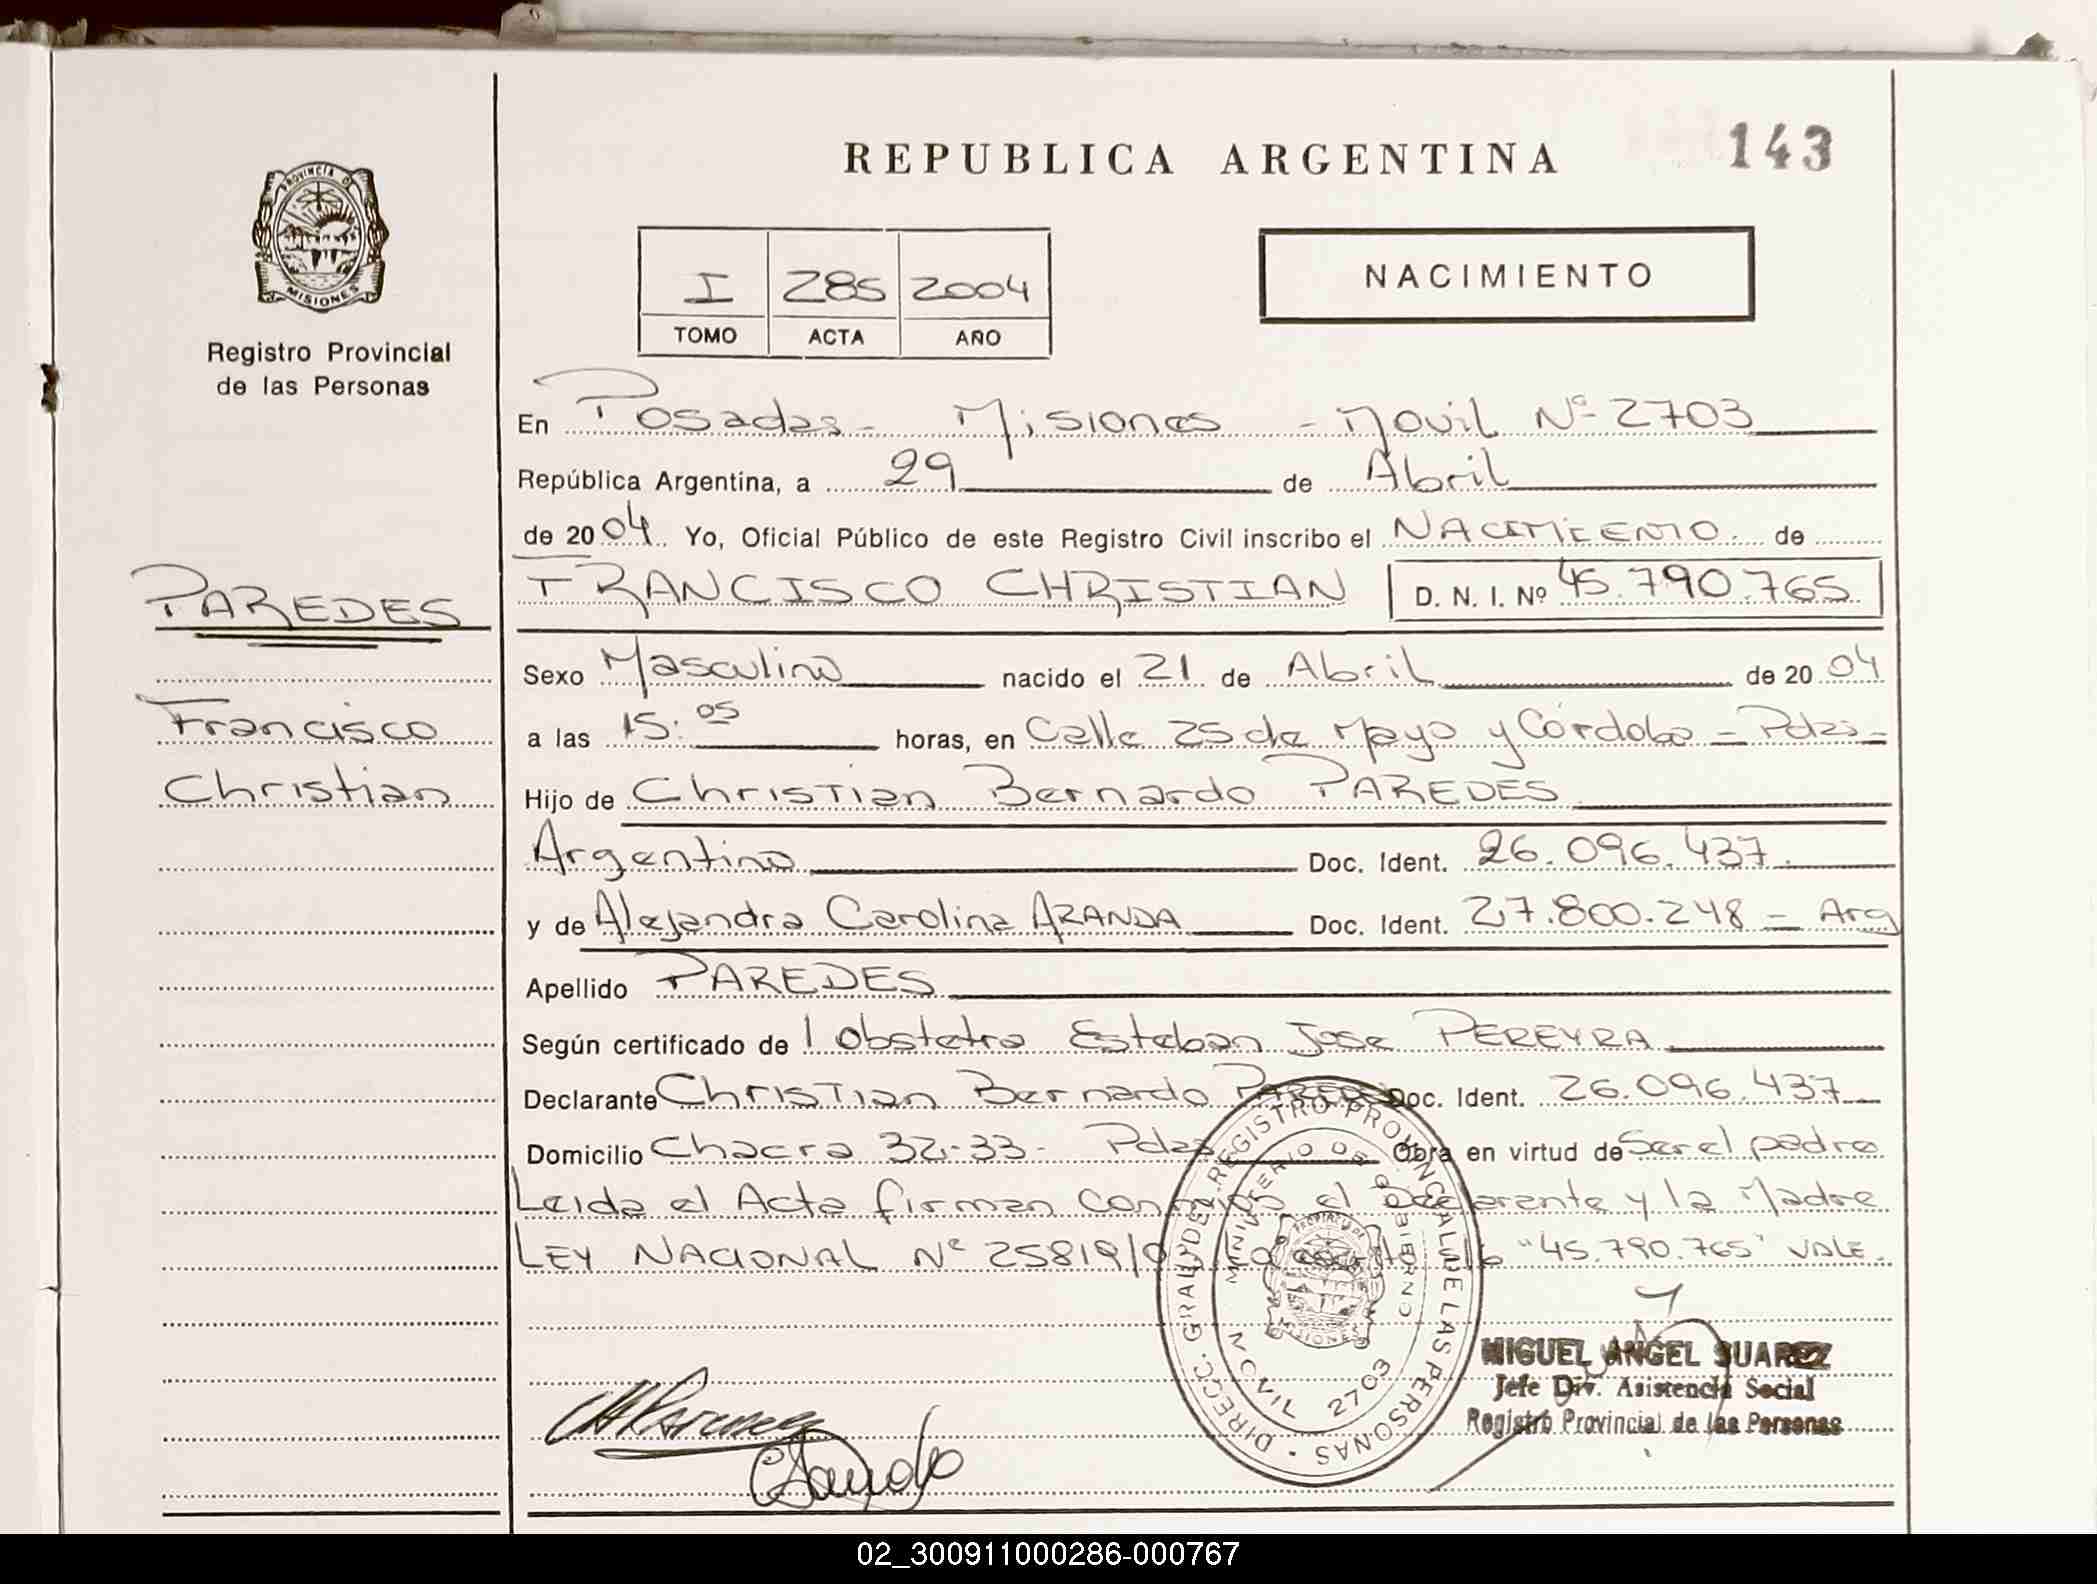 REPUBLICA ARGENTINA
143
PROVINCIA DE
MISIONES
Registro Provincial
de las Personas
I 285 2004
TOMO ACTA AÑO
NACIMIENTO
En Posadas - Misiones - Movil Nº 2703
República Argentina, a 29 de Abril
de 2004 Yo, Oficial Público de este Registro Civil inscribo el NACIMIENTO de
PAREDES
FRANCISCO CHRISTIAN D. N. I. Nº 45.790.765
Sexo Masculino nacido el 21 de Abril de 2004
Francisco
a las 15:05 horas, en Calle 25 de Mayo y Córdoba - Pdas -
Christian
Hijo de Christian Bernardo PAREDES
Argentino Doc. Ident. 26.096.437
y de Alejandra Carolina ARANDA Doc. Ident. 27.800.248 - Arg
Apellido PAREDES
Según certificado de Obstetra Esteban Jose PEREYRA
Declarante Christian Bernardo PAREDES Doc. Ident. 26.096.437
Domicilio Chacra 32-33- Pdas Obra en virtud de Ser el padre
Leida el Acta firman conmigo el Declarante y la Madre
LEY NACIONAL Nº 25819/ "45.790.765" VALE.
DIRECC. GRAL. DEL REGISTRO PROVINCIAL DE LAS PERSONAS
MINISTERIO DE GOBIERNO
PROVINCIA DE
MISIONES
MOVIL 2703
MIGUEL ANGEL SUAREZ
Jefe Div. Asistencia Social
Registro Provincial de las Personas
02_300911000286-000767